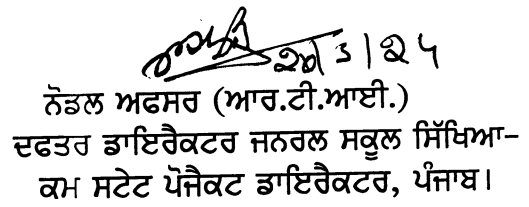 20/3/24
ਨੋਡਲ ਅਫਸਰ (ਆਰ.ਟੀ.ਆਈ.)
ਦਫਤਰ ਡਾਇਰੈਕਟਰ ਜਨਰਲ ਸਕੂਲ ਸਿੱਖਿਆ-
ਕਮ ਸਟੇਟ ਪੋਜੈਕਟ ਡਾਇਰੈਕਟਰ, ਪੰਜਾਬ।